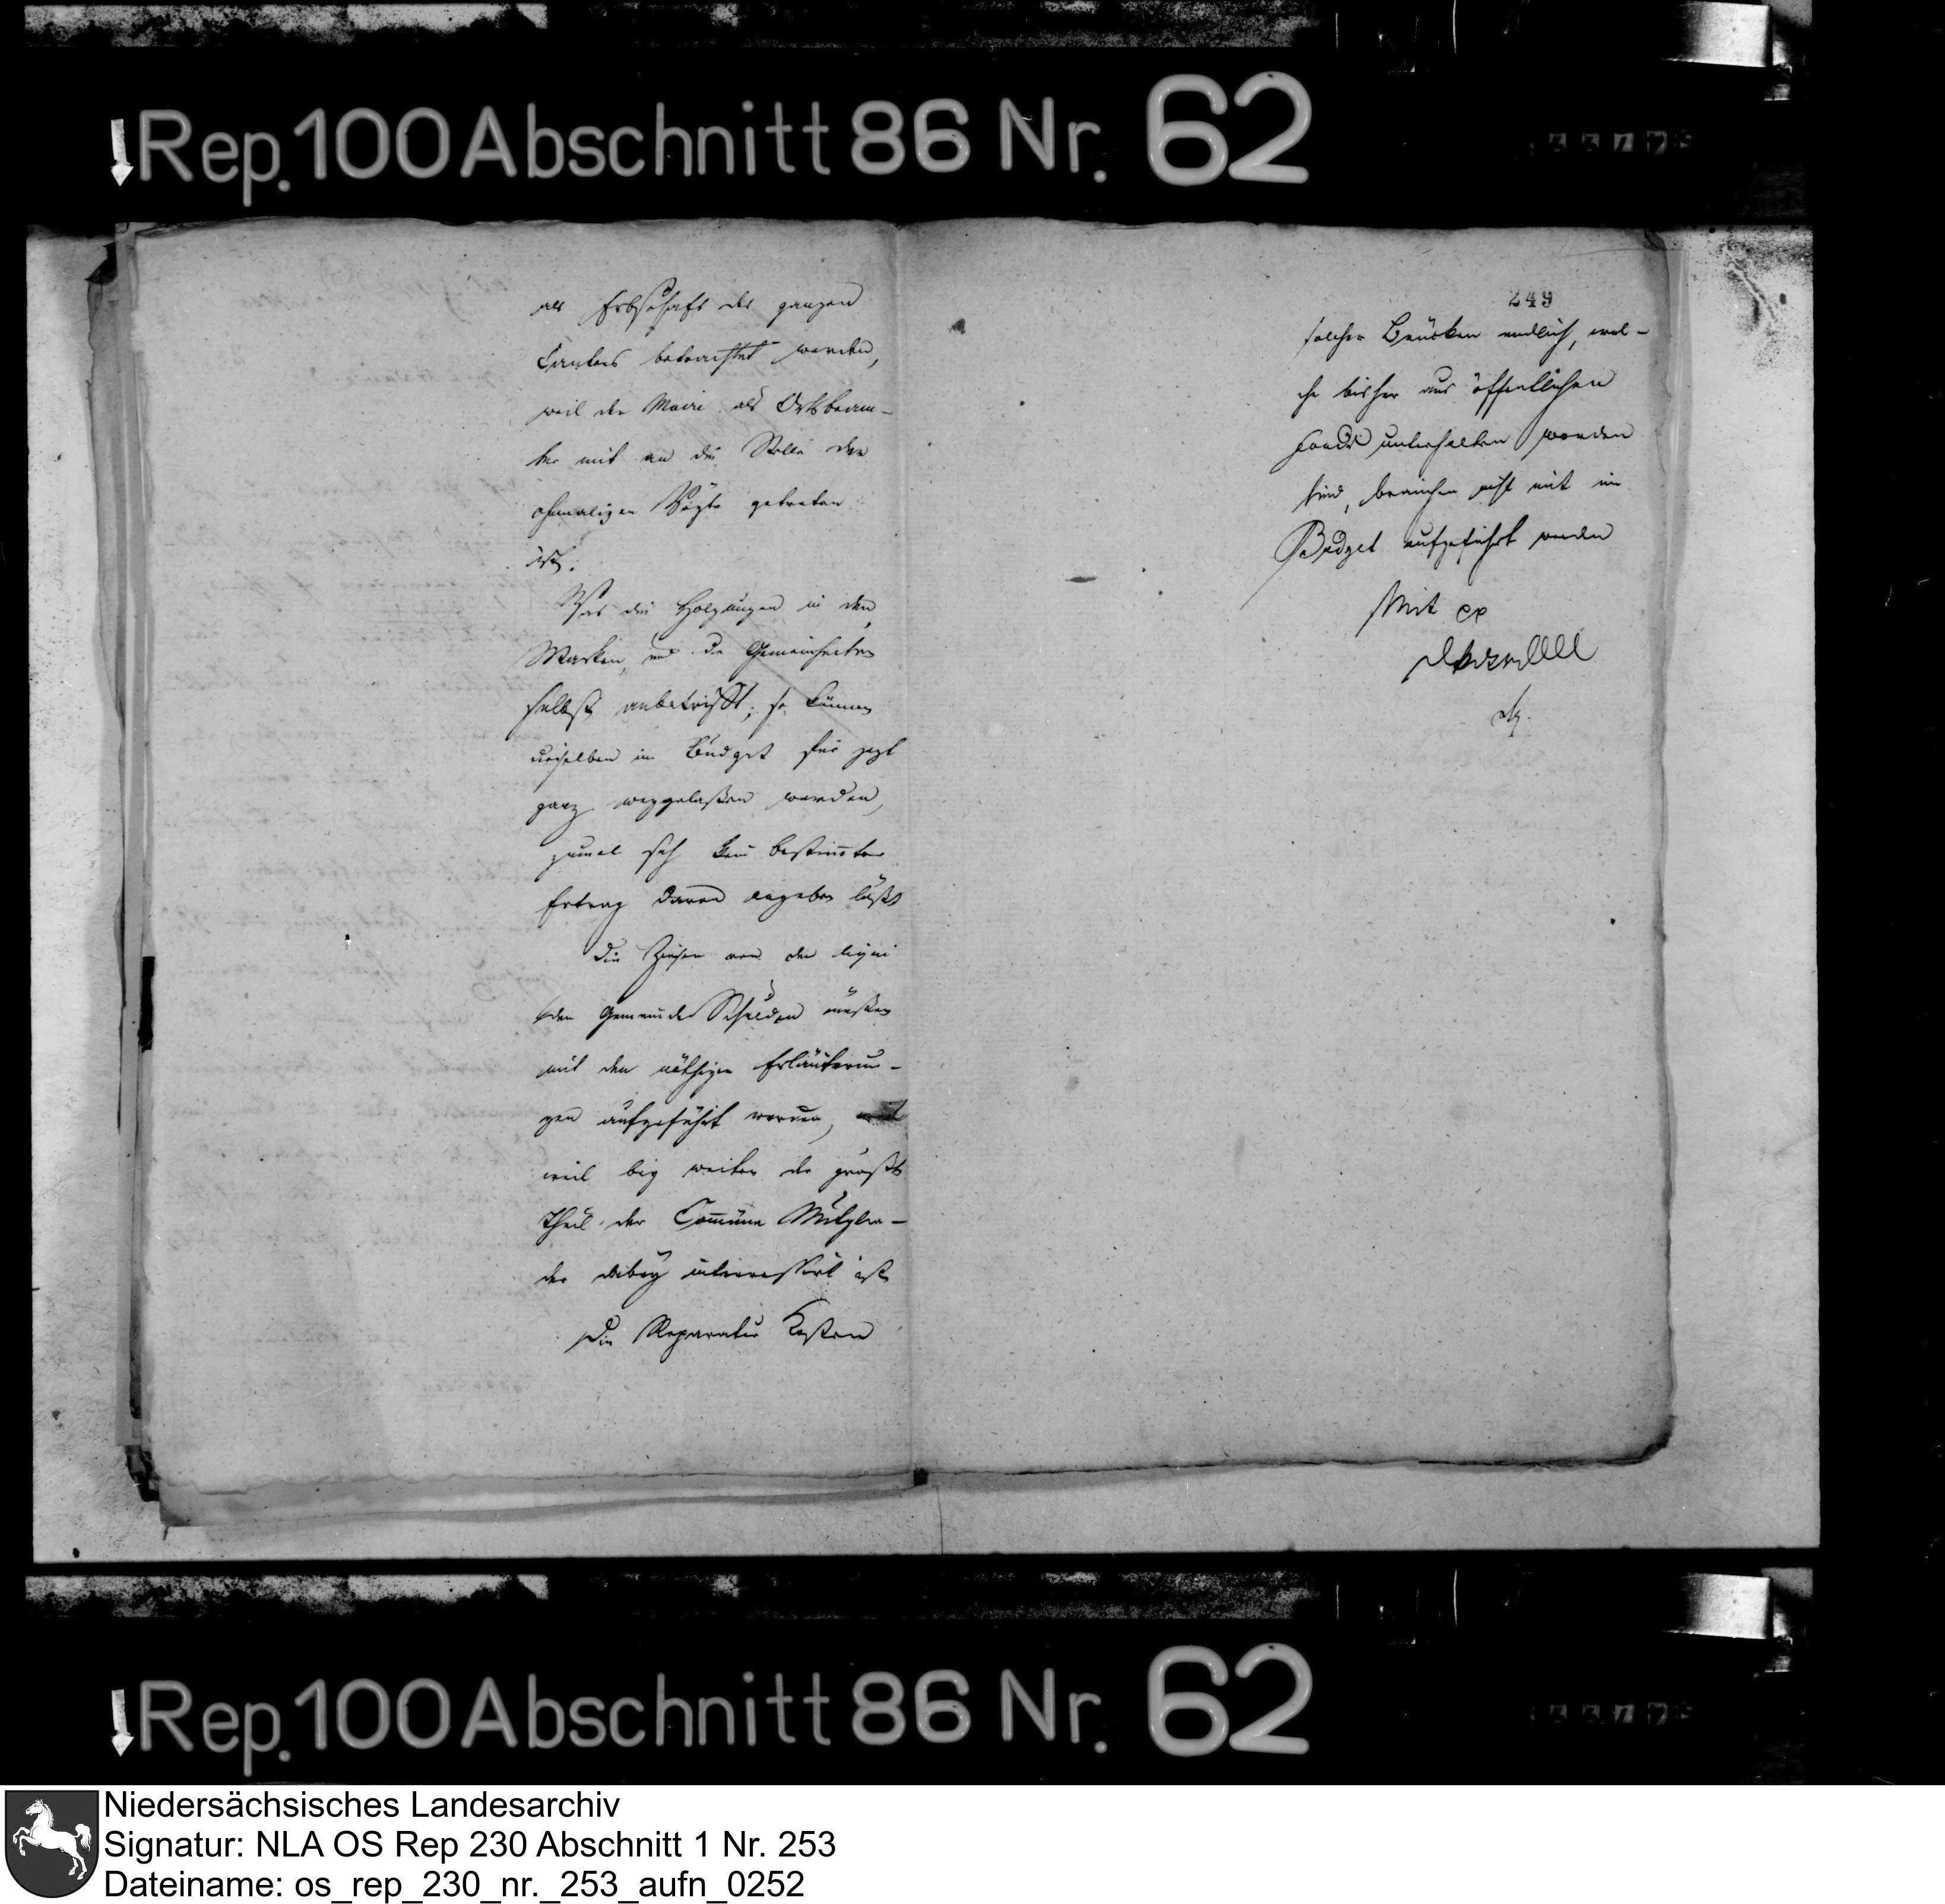 Rep. 100 Abschnitt 86 Nr. 62
als Erbschaft des ganzen
Cantons betrachtet werden,
weil der Maire als Ortsbeam-
ter mit an die Stelle der
ehmaligen Vögte getreten
ist.
Was die Holzungen in den
Marken, und die Gemeinheiten
selbst anbetrifft; so können
dieselben im Budget für jezt
ganz weggelaßen werden,
zumal sich kein bestim̅ter
Ertrag davon angeben läßt
Die Zinsen von den
den Gemeinde Schulden müßen
mit den nöthigen Erläuterun-
gen aufgeführt werden,
weil bey weiten der größte
Theil der Com̅une Mitglie-
der dabey interessirt ist
Die Reparatur Kosten
249
solcher Brücken endlich, wel-
che bisher aus öffentlichen
Fonds unterhalten worden
sind, brauchen nicht mit im
Budget aufgeführt werden
Mit
Rep. 100 Abschnitt 86 Nr. 62
Niedersächsisches Landesarchiv
Signatur: NLA OS Rep 230 Abschnitt 1 Nr. 253
Dateiname: os_rep_230_nr._253_aufn_0252